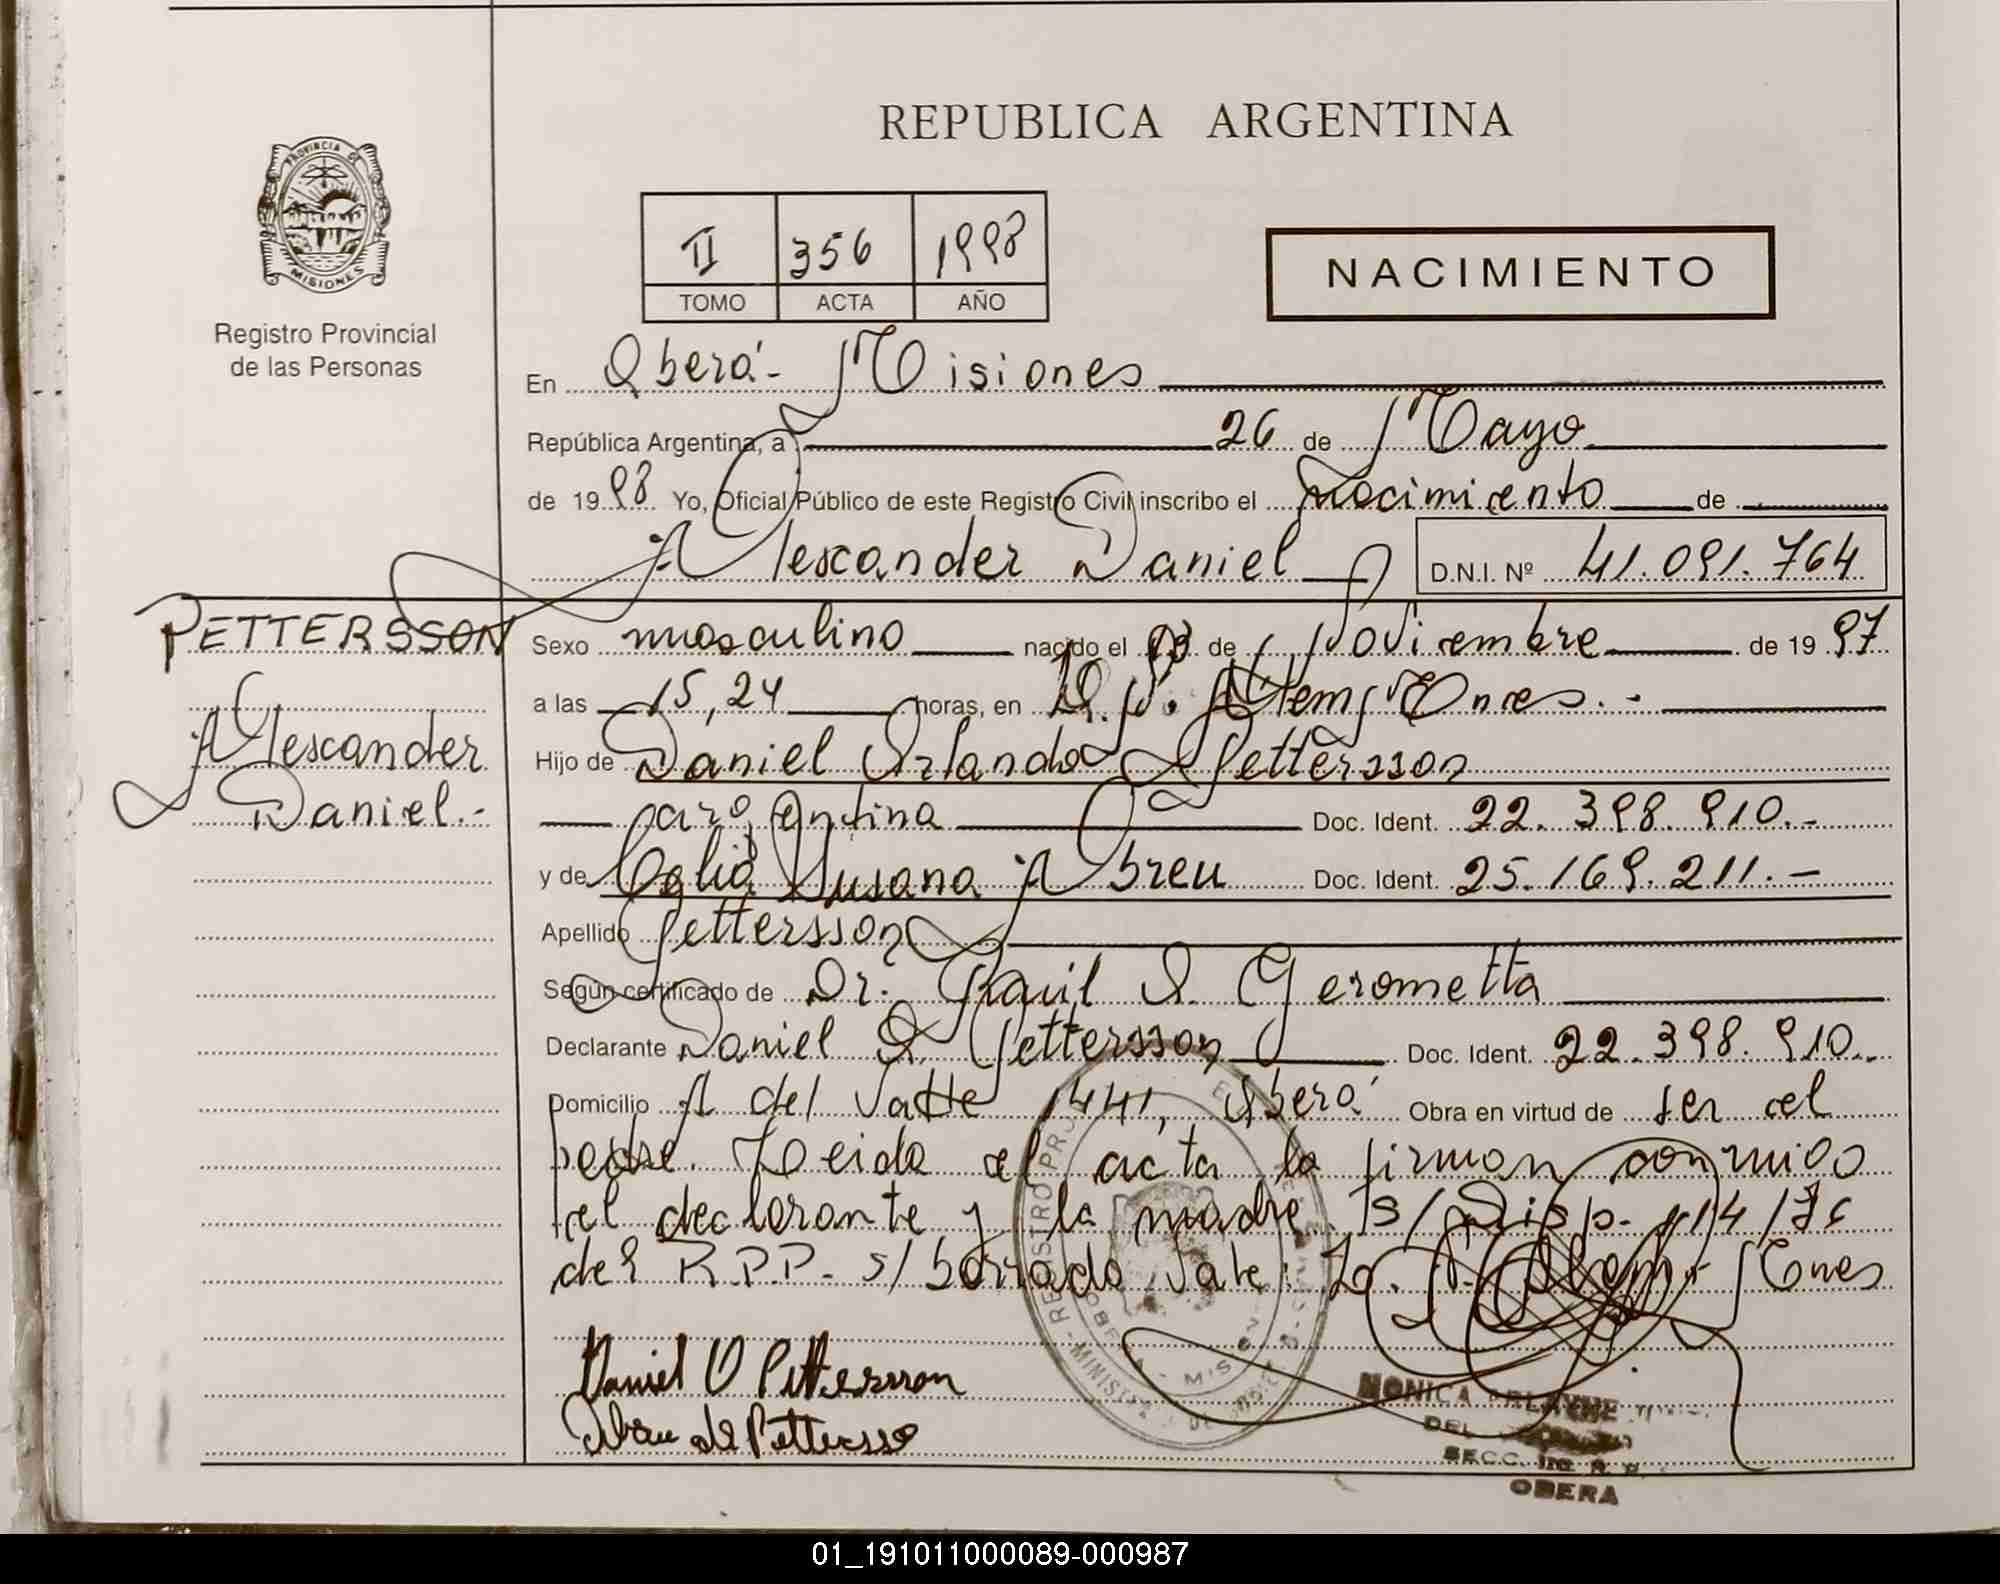 REPUBLICA ARGENTINA
PROVINCIA DE
MISIONES
Registro Provincial
de las Personas
II 356 1998
TOMO ACTA AÑO
NACIMIENTO
En Oberá - Misiones
República Argentina, a 26 de Mayo
de 1998 Yo, Oficial Público de este Registro Civil inscribo el nacimiento de
Alexander Daniel D.N.I. Nº 41.091.764
PETTERSSON
Alexander
Daniel.-
Sexo masculino nacido el de Noviembre de 1997
a las 15,24 horas, en Alem, Mnes.-
Hijo de Daniel Orlando Pettersson
argentina Doc. Ident. 22.398.910.-
y de Susana Abreu Doc. Ident. 25.169.211.-
Apellido Pettersson
Según certificado de Dr. Raul O. Gerometta
Declarante Daniel O. Pettersson Doc. Ident. 22.398.910.-
Domicilio A del Valle 1441, Oberá Obra en virtud de ser el
padre. Leida el acta la firman conmigo
el declarante y la madre. S/Disp. 114/
del R.P.P. s/borrado Vale: L. N. Alem - Mnes
Daniel O Pettersson
Abreu de Pettersso
MONICA
DEL
SECC. 1ra. R. P.
OBERA
01_191011000089-000987